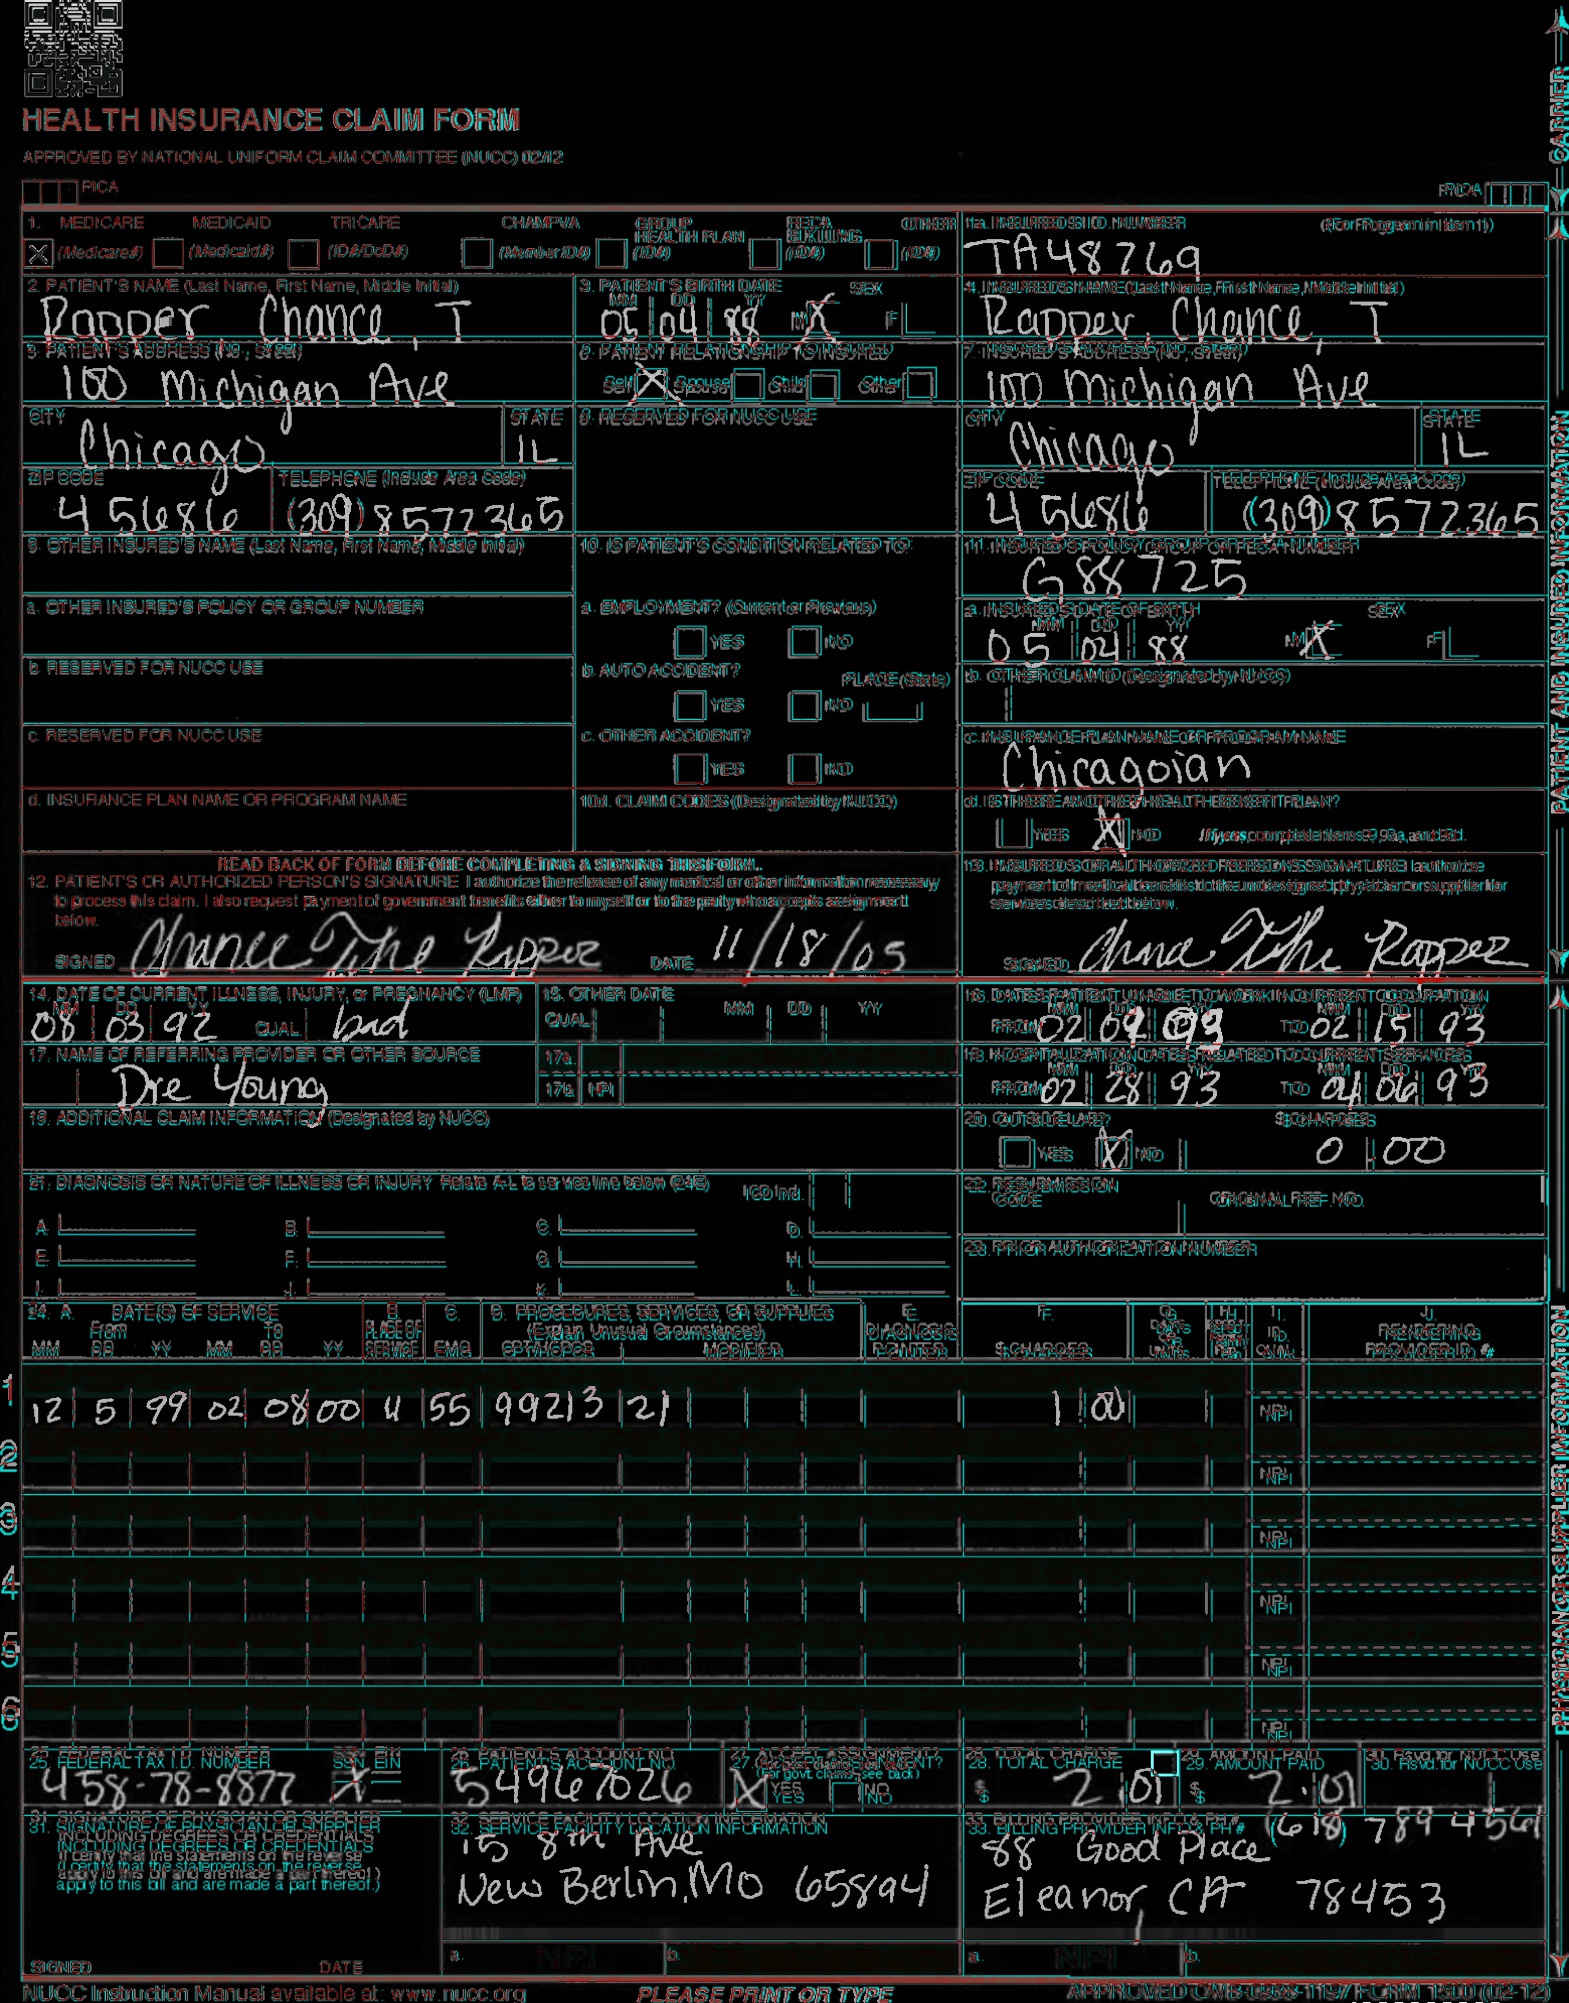 HEALTH INSURANCE CLAIM FORM
APPROVED BY NATIONAL UNIFORM CLAIM COMMITTEE (NUCC) 02/12
PICA
PICA
CARRIER
1. MEDICARE MEDICAID TRICARE CHAMPVA GROUP HEALTH PLAN FECA BLK LUNG OTHER
X (Medicare#) (Medicaid#) (ID#/DoD#) (Member ID#) (ID#) (ID#) (ID#)
1a. INSURED'S I.D. NUMBER (For Program in Item 1)
TA48769
2. PATIENT'S NAME (Last Name, First Name, Middle Initial)
Rapper, Chance, T
3. PATIENT'S BIRTH DATE SEX
MM DD YY
05 04 88 M X F
4. INSURED'S NAME (Last Name, First Name, Middle Initial)
Rapper, Chance, T
5. PATIENT'S ADDRESS (No., Street)
100 Michigan Ave
6. PATIENT RELATIONSHIP TO INSURED
Self X Spouse Child Other
7. INSURED'S ADDRESS (No., Street)
100 Michigan Ave
CITY STATE
Chicago IL
8. RESERVED FOR NUCC USE
CITY STATE
Chicago IL
ZIP CODE TELEPHONE (Include Area Code)
45686 (309) 8572365
ZIP CODE TELEPHONE (Include Area Code)
45686 (309) 8572365
9. OTHER INSURED'S NAME (Last Name, First Name, Middle Initial)
10. IS PATIENT'S CONDITION RELATED TO:
11. INSURED'S POLICY GROUP OR FECA NUMBER
G88725
a. OTHER INSURED'S POLICY OR GROUP NUMBER
a. EMPLOYMENT? (Current or Previous)
YES NO
a. INSURED'S DATE OF BIRTH SEX
MM DD YY
05 04 88 M X F
b. RESERVED FOR NUCC USE
b. AUTO ACCIDENT? PLACE (State)
YES NO
b. OTHER CLAIM ID (Designated by NUCC)
c. RESERVED FOR NUCC USE
c. OTHER ACCIDENT?
YES NO
c. INSURANCE PLAN NAME OR PROGRAM NAME
Chicagoian
d. INSURANCE PLAN NAME OR PROGRAM NAME
10d. CLAIM CODES (Designated by NUCC)
d. IS THERE ANOTHER HEALTH BENEFIT PLAN?
YES X NO If yes, complete items 9, 9a, and 9d.
READ BACK OF FORM BEFORE COMPLETING & SIGNING THIS FORM.
12. PATIENT'S OR AUTHORIZED PERSON'S SIGNATURE I authorize the release of any medical or other information necessary
to process this claim. I also request payment of government benefits either to myself or to the party who accepts assignment
below.
SIGNED Chance The Rapper DATE 11/18/05
13. INSURED'S OR AUTHORIZED PERSON'S SIGNATURE I authorize
payment of medical benefits to the undersigned physician or supplier for
services described below.
SIGNED Chance The Rapper
PATIENT AND INSURED INFORMATION
14. DATE OF CURRENT ILLNESS, INJURY, or PREGNANCY (LMP)
MM DD YY
08 03 92 QUAL bad
15. OTHER DATE
QUAL MM DD YY
16. DATES PATIENT UNABLE TO WORK IN CURRENT OCCUPATION
MM DD YY MM DD YY
FROM 02 09 93 TO 02 15 93
17. NAME OF REFERRING PROVIDER OR OTHER SOURCE
Dre Young
17a.
17b. NPI
18. HOSPITALIZATION DATES RELATED TO CURRENT SERVICES
MM DD YY MM DD YY
FROM 02 28 93 TO 04 06 93
19. ADDITIONAL CLAIM INFORMATION (Designated by NUCC)
20. OUTSIDE LAB? $ CHARGES
YES X NO 0 00
21. DIAGNOSIS OR NATURE OF ILLNESS OR INJURY Relate A-L to service line below (24E) ICD Ind.
A. B. C. D.
E. F. G. H.
I. J. K. L.
22. RESUBMISSION CODE ORIGINAL REF. NO.
23. PRIOR AUTHORIZATION NUMBER
24. A. DATE(S) OF SERVICE B. C. D. PROCEDURES, SERVICES, OR SUPPLIES E. F. G. H. I. J.
From To PLACE OF (Explain Unusual Circumstances) DIAGNOSIS DAYS OR ID. RENDERING
MM DD YY MM DD YY SERVICE EMG CPT/HCPCS MODIFIER POINTER $ CHARGES UNITS QUAL. PROVIDER ID. #
1 12 5 99 02 08 00 4 55 99213 21 1 00 NPI
2 NPI
3 NPI
4 NPI
5 NPI
6 NPI
25. FEDERAL TAX I.D. NUMBER SSN EIN
458-78-8877 X
26. PATIENT'S ACCOUNT NO.
54967026
27. ACCEPT ASSIGNMENT?
(For govt. claims, see back)
X YES NO
28. TOTAL CHARGE
$ 2 01
29. AMOUNT PAID
$ 2 01
30. Rsvd. for NUCC Use
31. SIGNATURE OF PHYSICIAN OR SUPPLIER
INCLUDING DEGREES OR CREDENTIALS
(I certify that the statements on the reverse
apply to this bill and are made a part thereof.)
SIGNED DATE
32. SERVICE FACILITY LOCATION INFORMATION
115 8th Ave
New Berlin, Mo 65894
a. NPI b.
33. BILLING PROVIDER INFO & PH # (618) 789 4561
88 Good Place
Eleanor, CA 78453
a. NPI b.
PHYSICIAN OR SUPPLIER INFORMATION
NUCC Instruction Manual available at: www.nucc.org
PLEASE PRINT OR TYPE
APPROVED OMB-0938-1197 FORM 1500 (02-12)